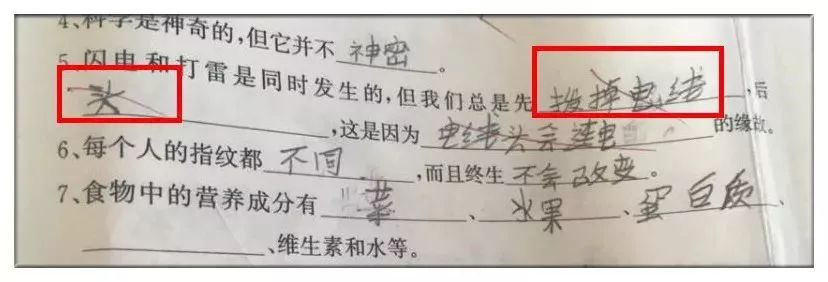 4、科学是神奇的,但它并不神密。
5、闪电和打雷是同时发生的,但我们总是先拨掉电线,后
头,这是因为电线头会连电的缘故。
6、每个人的指纹都不同,而且终生不会改变。
7、食物中的营养成分有菜、水果、蛋白质、
、维生素和水等。